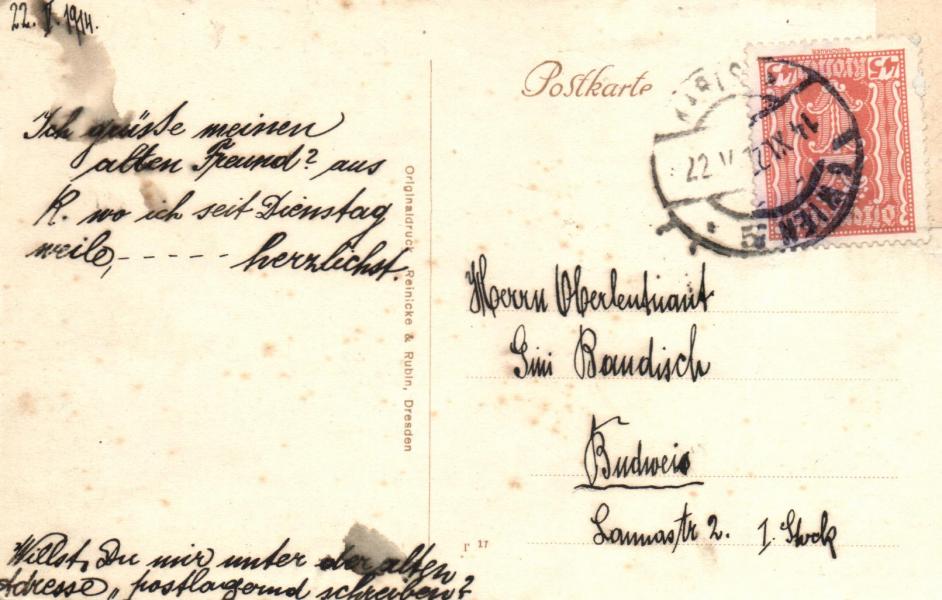 22. V. 1914.
Ich grüsse meinen
alten Freund? aus
K. wo ich seit Dienstag
weile, - - - - - - herzlichst.
Willst Du mir unter der alten
Adresse „postlagernd schreiben?
Originaldruck Reinicke & Rubin, Dresden
Postkarte
22 V
14 XI 22
WIEN
45 45
Herrn Oberleutnant
Gini Baudisch
Budweis
Lannastr 2. I. Stock
17